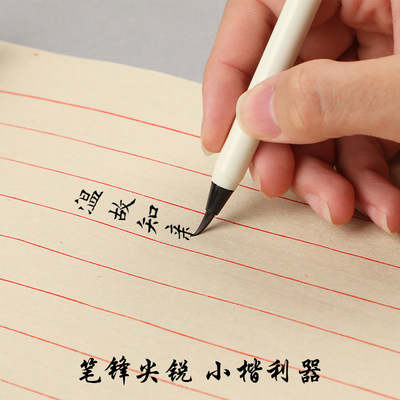 温故知亲
笔锋尖锐 小楷利器